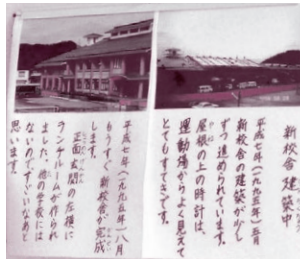 新校舎建築中
平成七年(一九九五年)五月
新校舎の建築が少し
ずつ進められています。
屋根の上の時計は、
運動場からよく見えて
とてもすてきです。
平成七年(一九九五年)八月
もうすぐ新校舎が完成
します。
正面玄関の左横に
ランチルームが作られ
ました。他の学校には
ないのですごいなあと
思います。